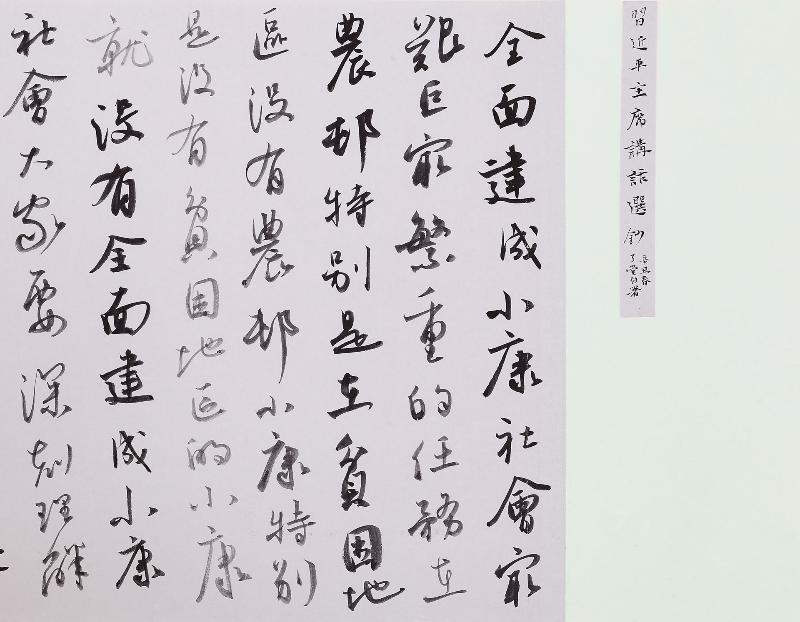 習近平主席講話選鈔
辛丑春
全面建成小康社會冣
艱巨冣繁重的任務在
農邨特别是在貧困地
區没有農邨小康特别
是没有貧困地区的小康
就没有全面建成小康
社會大家要深刻理解